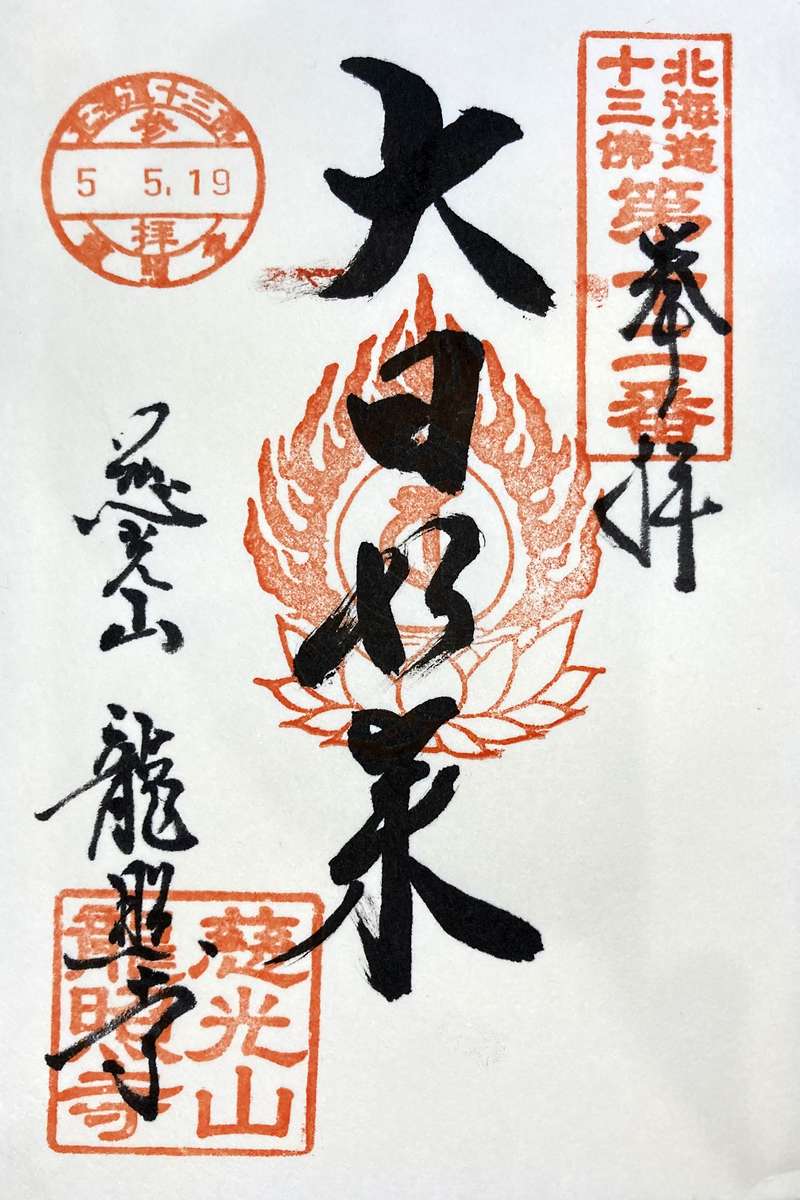 北海道
十三佛
第十二番
奉拝
大日如来
北海道十三佛
参
5 5.19
拝
慈光山 龍照寺
慈光山
龍照寺